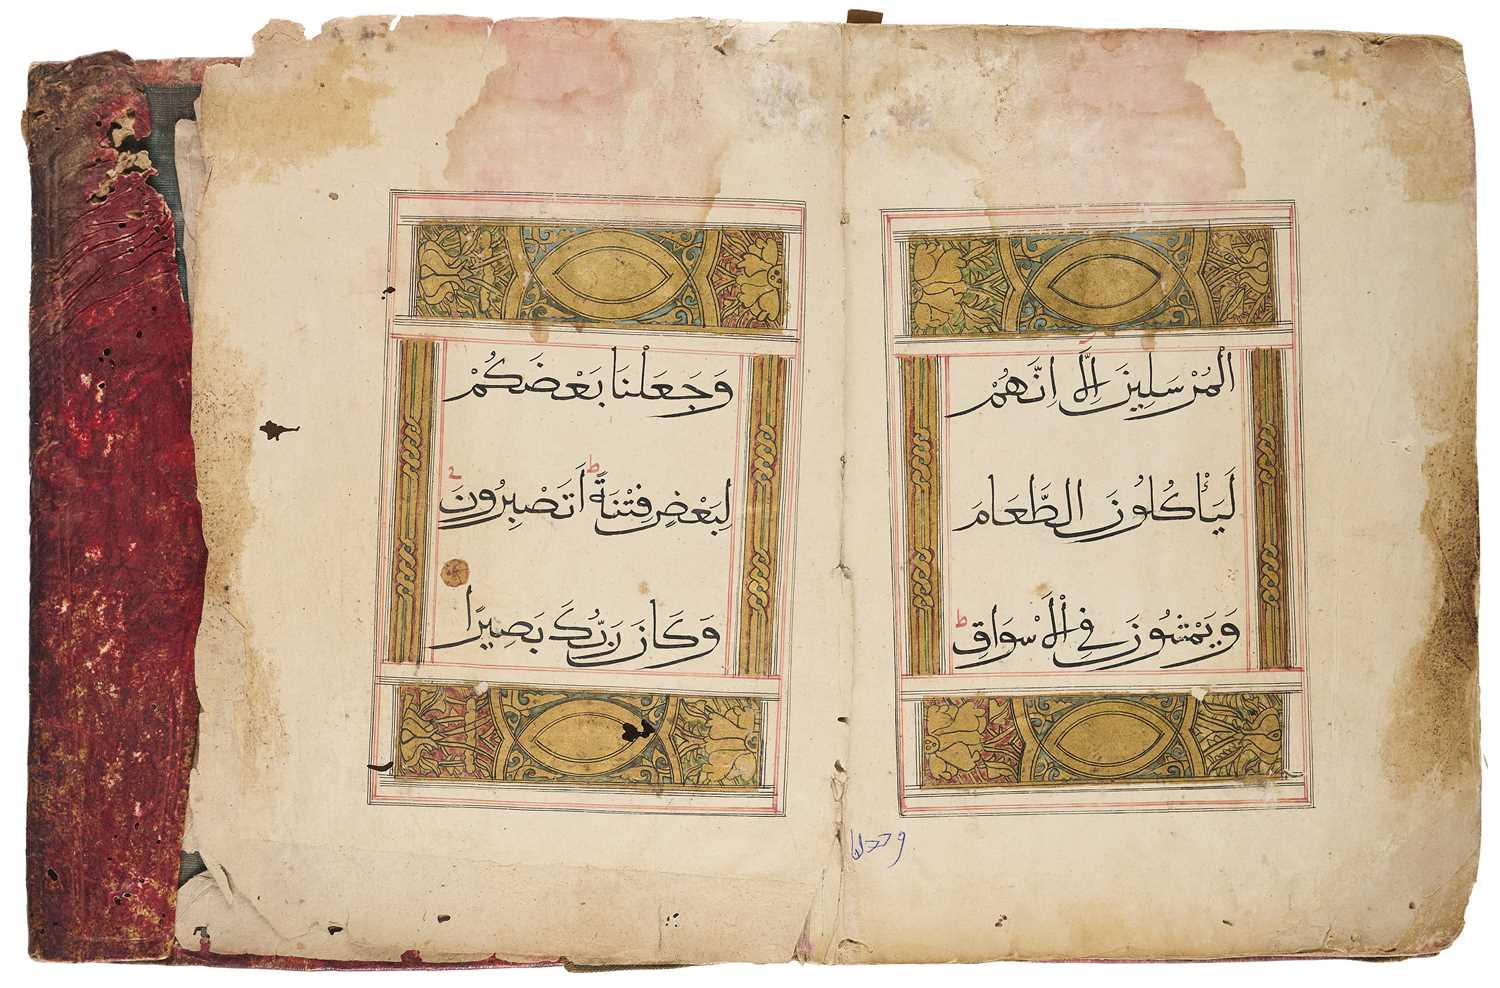 الْمُرْسَلِينَ إِلَّا اِنَّهُمْ
لَيَأْكُلُونَ الطَّعَامَ
وَيَمْشُونَ فِي الْاَسْوَاقِ ط
وَجَعَلْنَا بَعْضَكُمْ
لِبَعْضٍ فِتْنَةً ط اَتَصْبِرُونَ
وَكَانَ رَبُّكَ بَصِيرًا